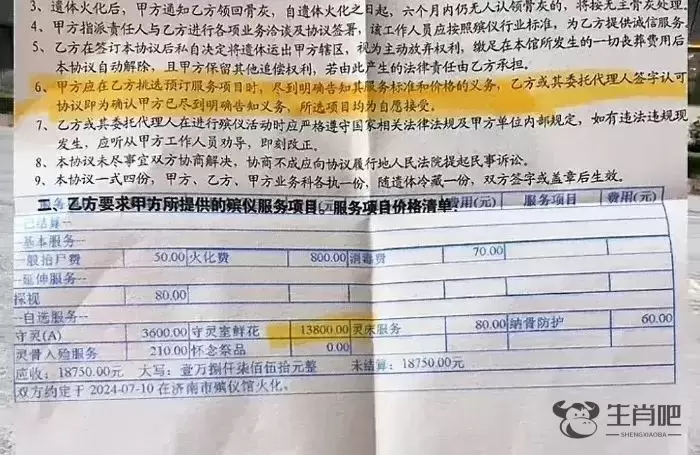 3、遗体火化后，甲方通知乙方领回骨灰，自遗体火化之日起，六个月内仍无人认领骨灰的，将按无主骨灰处理。
4、甲方指派责任人与乙方进行各项业务洽谈及协议签署，该工作人员应按照殡仪行业标准，为乙方提供诚信服务
5、乙方在签订本协议后私自决定将遗体运出甲方辖区，视为主动放弃权利，缴足在本馆所发生的一切丧葬费用后
本协议自动解除，且甲方保留其他追偿权利，若由此产生的法律责任由乙方承担。
6、甲方应在乙方挑选预订服务项目时，尽到明确告知其服务标准和价格的义务，乙方或其委托代理人签字认可
协议即为确认甲方已尽到明确告知义务，所选项目均为自愿接受。
7、乙方或其委托代理人在进行殡仪活动时应严格遵守国家相关法律法规及甲方单位内部规定，如有违法违规现
发生，应听从甲方工作人员劝导，即刻改正。
8、本协议未尽事宜双方协商解决，协商不成应向协议履行地人民法院提起民事诉讼。
9、本协议一式四份，甲方、乙方、甲方业务科各执一份，随遗体冷藏一份，双方签字或盖章后生效。
二、乙方要求甲方所提供的殡仪服务项目、服务项目价格清单：
费用(元) 服务项目 费用(元)
--已结算--
--基本服务--
一般抬尸费 50.00 火化费 800.00 消毒费 70.00
--延伸服务--
探视 80.00
--自选服务--
守灵(A) 3600.00 守灵室鲜花 13800.00 灵床服务 80.00 纳骨防护 60.00
灵骨入殓服务 210.00 怀念祭品 0.00
应收：18750.00元 大写：壹万捌仟柒佰伍拾元整 未结算：18750.00元
双方约定于 2024-07-10 在济南市殡仪馆火化。
生肖吧
SHENGXIAOBA